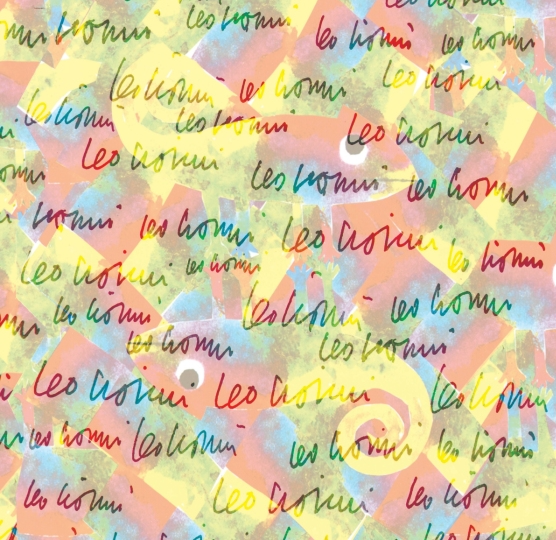 leo lionni
leo lionni leo lionni leo lionni leo lionni
leo lionni leo lionni leo lionni
leo lionni leo lionni leo lionni
leo lionni leo lionni leo lionni
leo lionni leo lionni leo lionni leo lionni
leo lionni leo lionni
leo lionni leo lionni leo lionni
leo lionni leo lionni
leo lionni leo lionni leo lionni
leo lionni leo lionni leo lionni leo lionni
leo lionni leo lionni leo lionni
leo lionni